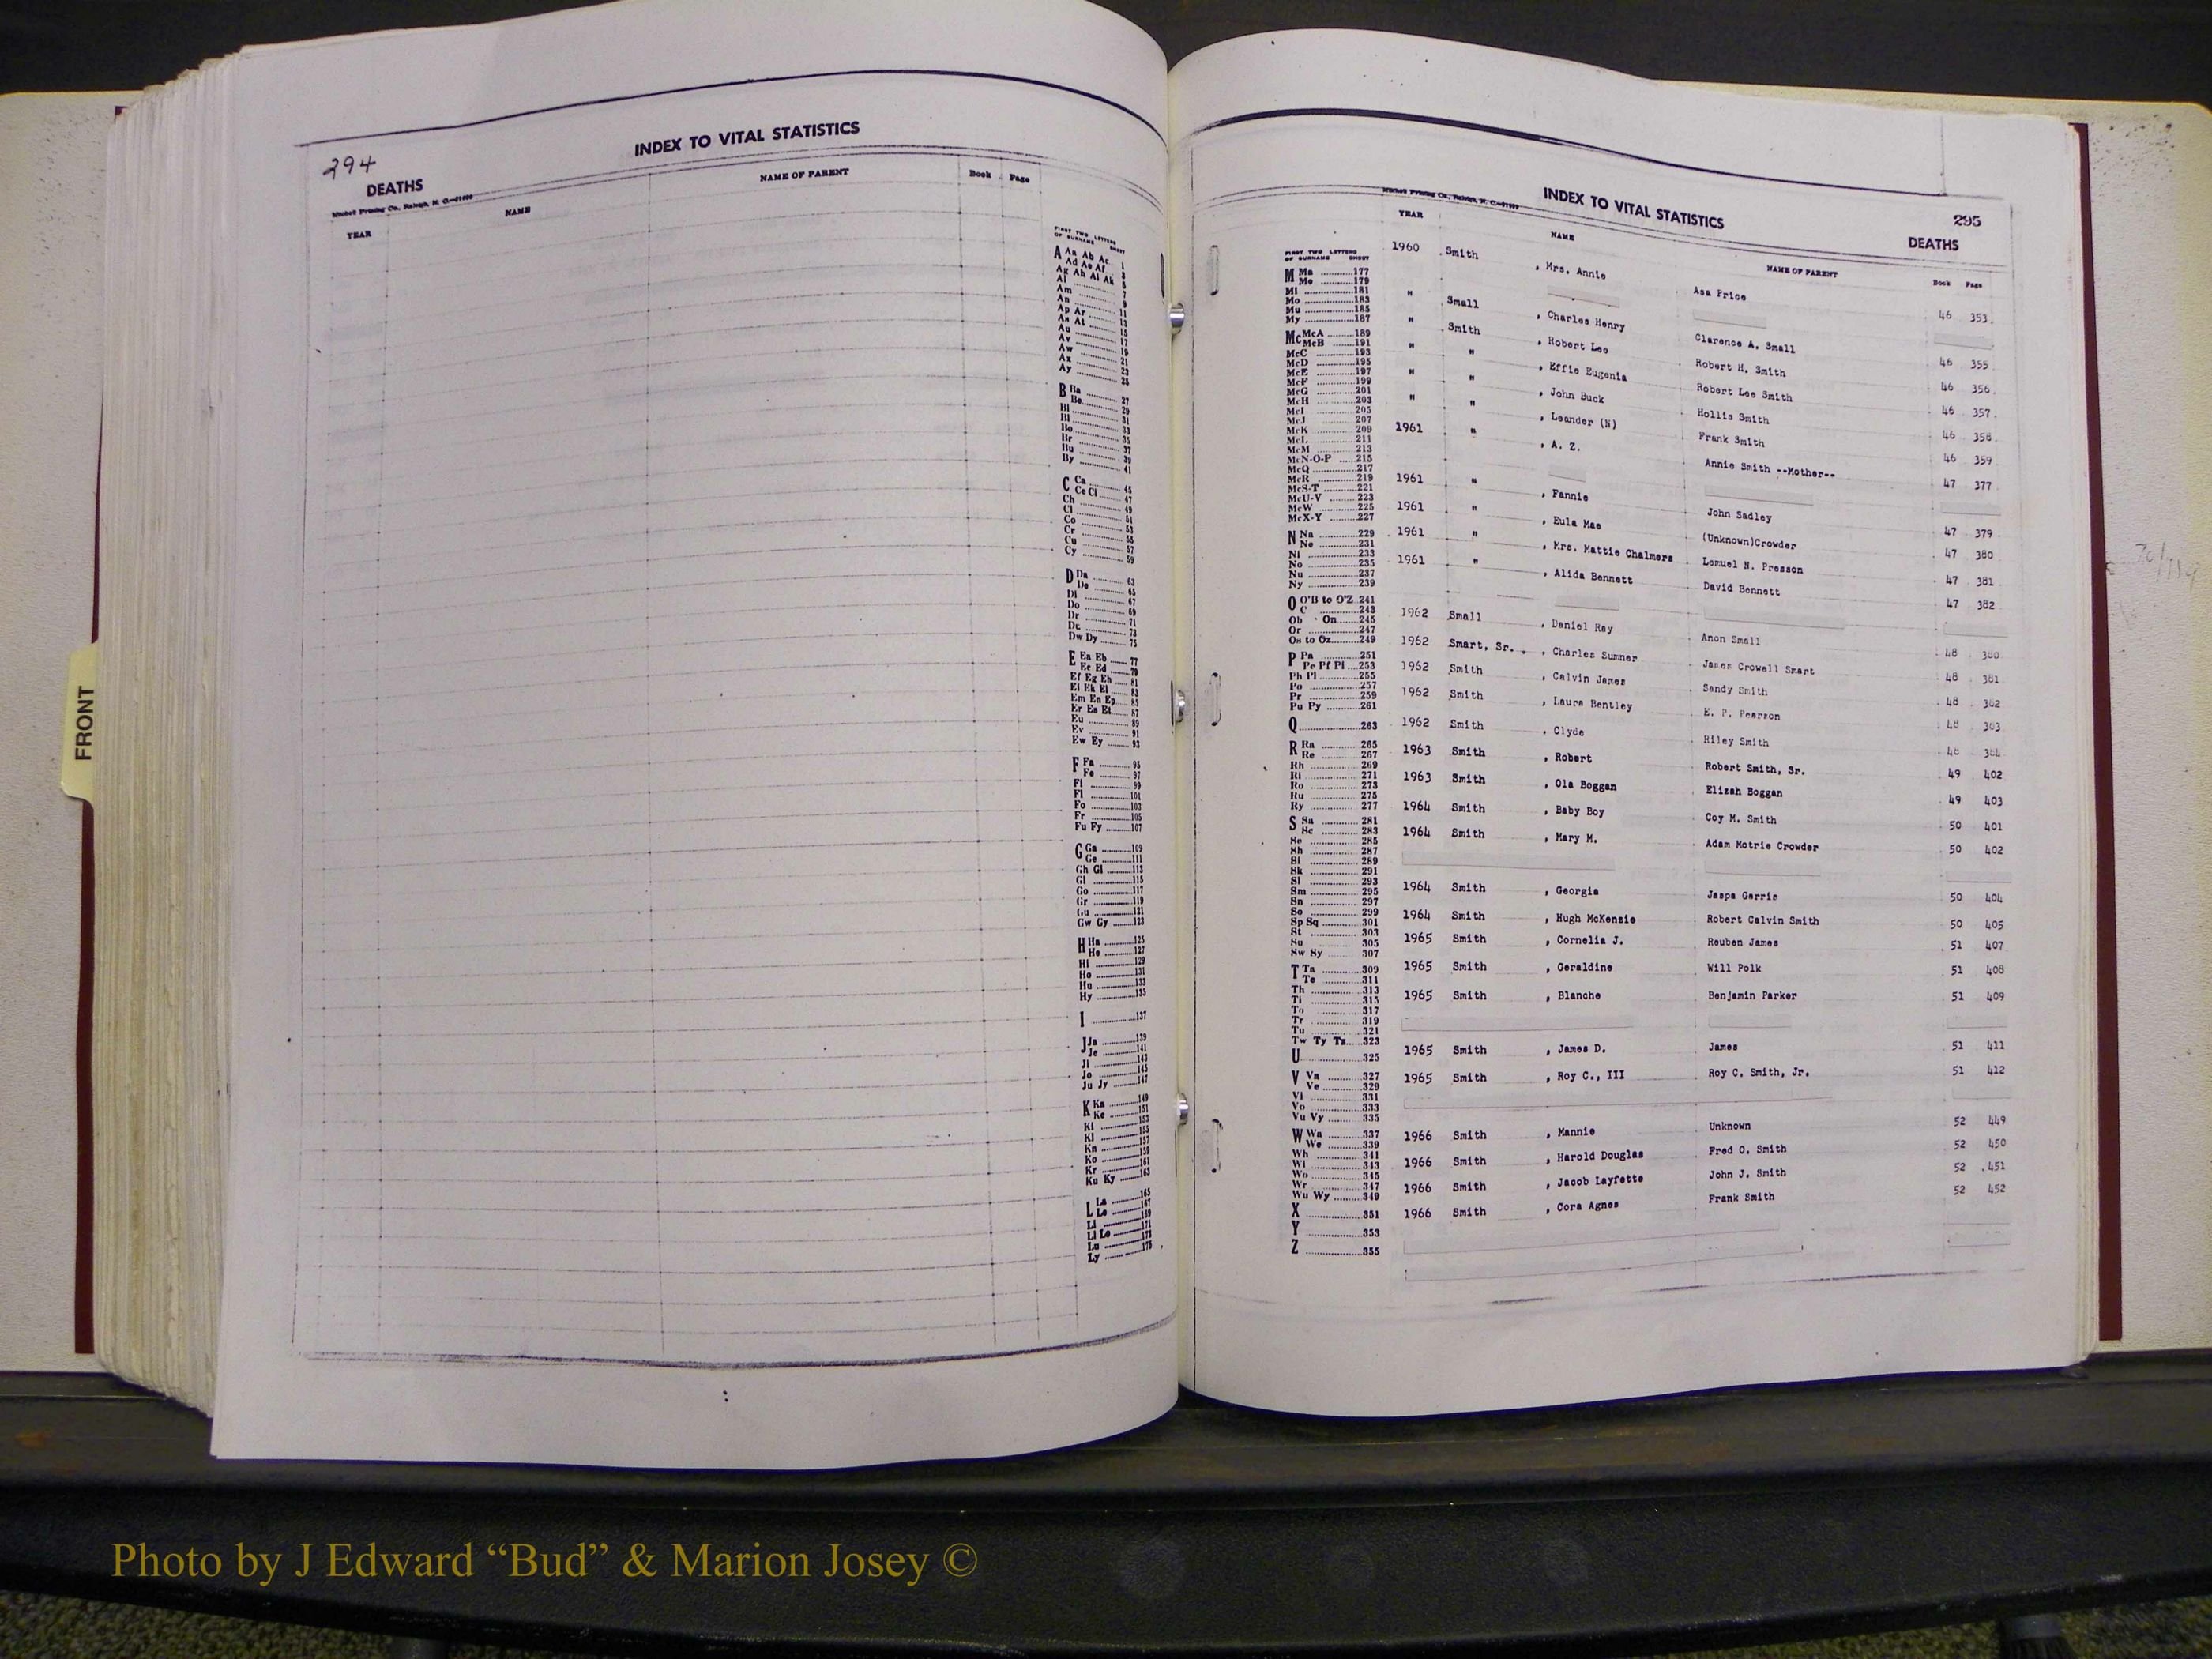 294
INDEX TO VITAL STATISTICS
DEATHS
Mitchell Printing Co., Raleigh, N. C.
YEAR NAME NAME OF PARENT Book Page
FIRST TWO LETTERS
OF SURNAME SHEET
A Aa Ab Ac 1
Ad Ae Af 3
Ag Ah Ai Ak 5
Al 7
Am 9
An 11
Ap Ar 13
As At 15
Au 17
Av 19
Aw 21
Ax 23
Ay 25
B Ba 27
Be 29
Bi 31
Bl 33
Bo 35
Br 37
Bu 39
By 41
C Ca 45
Ce Ci 47
Ch 49
Cl 51
Co 53
Cr 55
Cu 57
Cy 59
D Da 63
De 65
Di 67
Do 69
Dr 71
Du 73
Dw Dy 75
E Ea Eb 77
Ec Ed 79
Ef Eg Eh 81
Ei Ek El 83
Em En Ep 85
Er Es Et 87
Eu 89
Ev 91
Ew Ey 93
F Fa 95
Fe 97
Fi 99
Fl 101
Fo 103
Fr 105
Fu Fy 107
G Ga 109
Ge 111
Gh Gi 113
Gl 115
Go 117
Gr 119
Gu 121
Gw Gy 123
H Ha 125
He 127
Hi 129
Ho 131
Hu 133
Hy 135
I 137
J Ja 139
Je 141
Ji 143
Jo 145
Ju Jy 147
K Ka 149
Ke 151
Ki 153
Kl 155
Kn 157
Ko 159
Kr 161
Ku Ky 163
L La 165
Le 167
Li 169
Ll Lo
Lu
Ly 175
FRONT
INDEX TO VITAL STATISTICS
295
DEATHS
Mitchell Printing Co., Raleigh, N. C.
YEAR NAME NAME OF PARENT Book Page
FIRST TWO LETTERS
OF SURNAME SHEET
M Ma 177
Me 179
Mi 181
Mo 183
Mu 185
My 187
Mc McA 189
McB 191
McC 193
McD 195
McE 197
McF 199
McG 201
McH 203
McI 205
McJ 207
McK 209
McL 211
McM 213
McN-O-P 215
McQ 217
McR 219
McS-T 221
McU-V 223
McW 225
McX-Y 227
N Na 229
Ne 231
Ni 233
No 235
Nu 237
Ny 239
O O'B to O'Z 241
C 243
Ob On 245
Or 247
Os to Oz 249
P Pa 251
Pe Pf Pi 253
Ph Pl 255
Po 257
Pr 259
Pu Py 261
Q 263
R Ra 265
Re 267
Rh 269
Ri 271
Ro 273
Ru 275
Ry 277
S Sa 281
Sc 283
Se 285
Sh 287
Si 289
Sk 291
Sl 293
Sm 295
Sn 297
So 299
Sp Sq 301
St 303
Su 305
Sw Sy 307
T Ta 309
Te 311
Th 313
Ti 315
To 317
Tr 319
Tu 321
Tw Ty Tz 323
U 325
V Va 327
Ve 329
Vi 331
Vo 333
Vu Vy 335
W Wa 337
We 339
Wh 341
Wi 343
Wo 345
Wr 347
Wu Wy 349
X 351
Y 353
Z 355
1960 Smith , Mrs. Annie Asa Price 46 353
" Small , Charles Henry Clarence A. Small 46 355
" Smith , Robert Lee Robert H. Smith 46 356
" " , Effie Eugenia Robert Lee Smith 46 357
" " , John Buck Hollis Smith 46 358
" " , Leander (N) Frank Smith 46 359
1961 " , A. Z. Annie Smith --Mother-- 47 377
1961 " , Fannie John Sadley 47 379
1961 " , Eula Mae (Unknown)Crowder 47 380
1961 " , Mrs. Mattie Chalmers Lemuel N. Presson 47 381
1961 " , Alida Bennett David Bennett 47 382
1962 Small , Daniel Ray Anon Small 48 380
1962 Smart, Sr. , Charles Sumner James Crowell Smart 48 381
1962 Smith , Calvin James Sandy Smith 48 382
1962 Smith , Laura Bentley E. P. Pearson 48 383
1962 Smith , Clyde Riley Smith 48 384
1963 Smith , Robert Robert Smith, Sr. 49 402
1963 Smith , Ola Boggan Elizah Boggan 49 403
1964 Smith , Baby Boy Coy M. Smith 50 401
1964 Smith , Mary M. Adam Motrie Crowder 50 402
1964 Smith , Georgia Jaspa Garris 50 404
1964 Smith , Hugh McKenzie Robert Calvin Smith 50 405
1965 Smith , Cornelia J. Reuben James 51 407
1965 Smith , Geraldine Will Polk 51 408
1965 Smith , Blanche Benjamin Parker 51 409
1965 Smith , James D. James 51 411
1965 Smith , Roy C., III Roy C. Smith, Jr. 51 412
1966 Smith , Mannie Unknown 52 449
1966 Smith , Harold Douglas Fred O. Smith 52 450
1966 Smith , Jacob Layfette John J. Smith 52 451
1966 Smith , Cora Agnes Frank Smith 52 452
Photo by J Edward “Bud” & Marion Josey ©